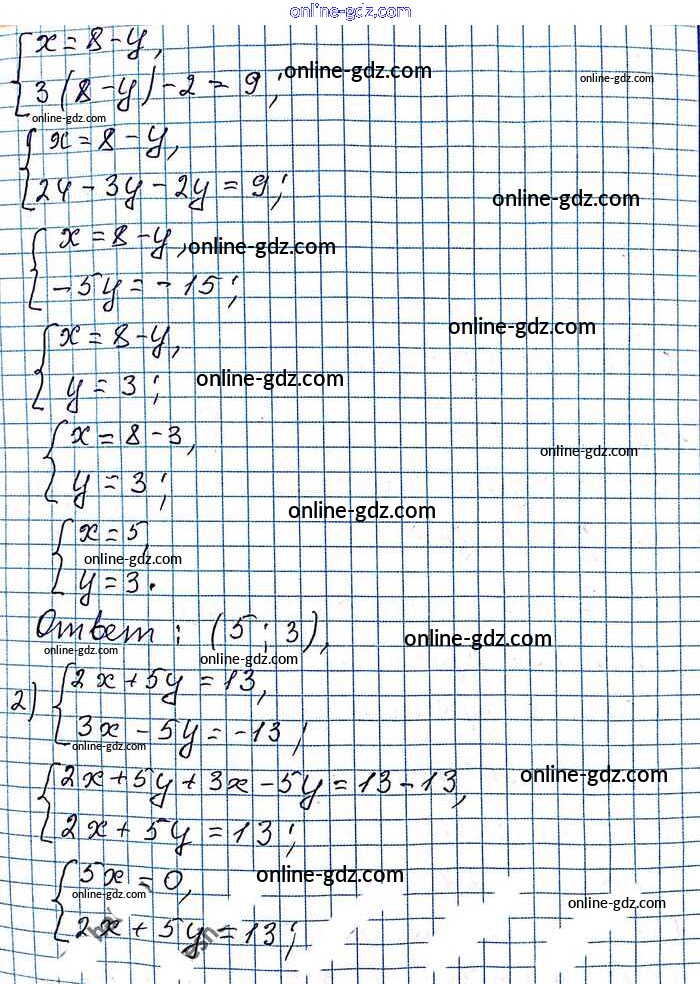 online-gdz.com
x = 8 - y,
online-gdz.com
online-gdz.com
3(8 - y) - 2 = 9;
online-gdz.com
x = 8 - y,
24 - 3y - 2y = 9;
online-gdz.com
x = 8 - y,
online-gdz.com
-5y = -15;
online-gdz.com
x = 8 - y,
y = 3;
online-gdz.com
x = 8 - 3,
online-gdz.com
y = 3;
online-gdz.com
x = 5,
online-gdz.com
y = 3.
Ответ: (5; 3),
online-gdz.com
online-gdz.com
online-gdz.com
2) 2x + 5y = 13,
3x - 5y = -13;
online-gdz.com
2x + 5y + 3x - 5y = 13 - 13,
online-gdz.com
2x + 5y = 13;
5x = 0,
online-gdz.com
online-gdz.com
online-gdz.com
2x + 5y = 13;